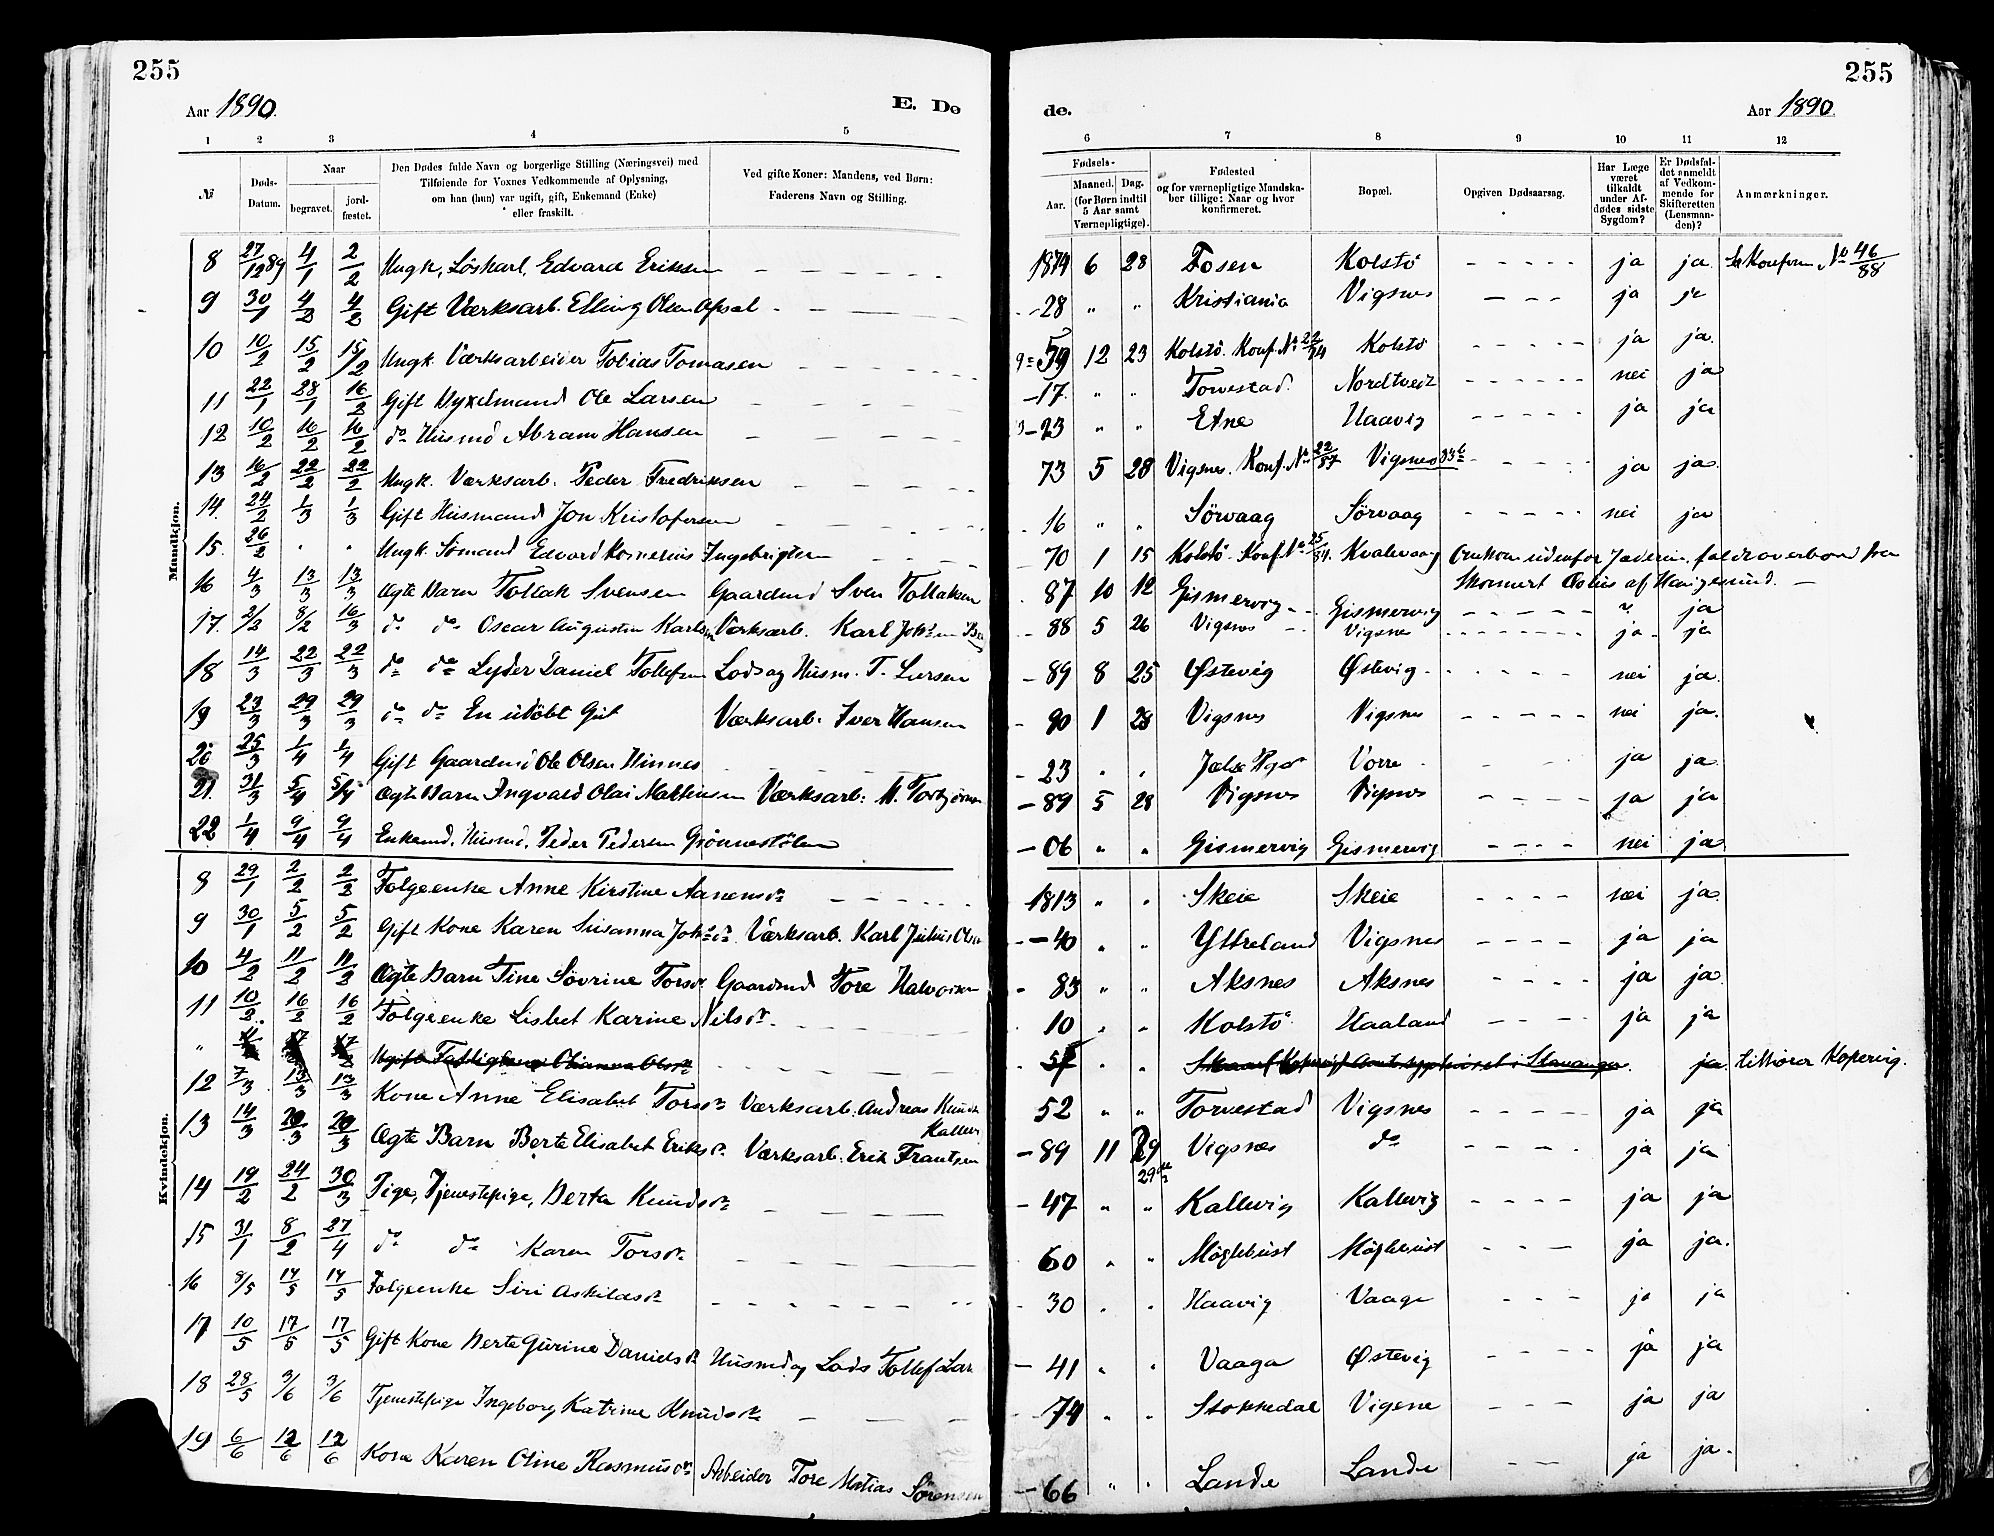 255
255
Aar 1890.
E. Dø
de.
Aar 1890.
1 2 3 4 5
6 7 8 9 10 11 12
№
Døds-Datum.
Naar
begravet.
jord-fæstet.
Den Dødes fulde Navn og borgerlige Stilling (Næringsvei) med
Tilføiende for Voxnes Vedkommende af Oplysning,
om han (hun) var ugift, gift, Enkemand (Enke)
eller fraskilt.
Ved gifte Koner: Mandens, ved Børn:
Faderens Navn og Stilling.
Fødsels-
Aar.
Maaned. Dag.
(for Børn indtil
5 Aar samt
Værnepligtige).
Fødested
og for værnepligtige Mandska-
ber tillige: Naar og hvor
konfirmeret.
Bopæl.
Opgiven Dødsaarsag.
Har Læge
været
tilkaldt
under Af-
dødes sidste
Sygdom?
Er Dødsfal-
det anmeldt
af Vedkom-
mende for
Skifteretten
(Lensman-
den)?
Anmærkninger.
Mandkjøn.
8 27/12 89 4/1 2/2 Ungk. Löskarl, Edvard Eriksen 1874 6 28 Fosen Kolstö ja ja. Konfirm No 46/88
9 30/1 4/2 4/2 Gift Værksarb. Elling Olsen -28 " " Kristiania Vigsnes ja ja
10 10/2 15/2 15/2 Ungk. Værksarbeider Tobias Tomasen 59 12 23 Kolstö. Konf. No 22/74 Kolstö ja ja.
11 22/1 28/1 16/2 Gift Ole Larsen -17. " " Torvestad. Nordtveit nei ja
12 10/2 16/2 16/2 do Husmd Abram Hansen -23 " " Etne Haavig ja ja
13 16/2 22/2 22/2 Ungk. Værksarb. Peder Fredriksen 73 5 28 Vigsnes. Konf. No 22/87 Vigsnes ja ja.
14. 24/2 1/3 1/3 Gift Husmand Jon Kristofersen 16 " " Sörvaag Sörvaag nei ja
15. 26/2 " " Ungk. Sömand Edvard Kornelius Ingebrigtsen 70 1 15 Kolstö. Konf. No Kvalevaag Omkom udenfor Jæderen, faldt overbord fra
Skonnert Æolus af Haugesund.
16 4/3 13/3 13/3 Ægte Barn Tollak Svensen Gaardmd Sven Tollaksen 87 10 12 Gismervig Gismervig ? ja
17. 2/2 8/2 16/3 do do Oscar Augustin Karlsen Værksarb. Karl 88 5 26 Vigsnes Vigsnes ja ja
18 14/3 22/3 22/3 do do Lyder Daniel Tollefsen Lods og Husm. T. Larsen -89 8 25 Östevig Østevig nei ja.
19 23/3 29/3 29/3 do do En udöbt Gut Værksarb. Iver Hansen -90 1 28 Vigsnes Vigsnes nei ja.
20 25/3 1/4 1/4 Gift Gaardmd Ole Olsen Hinnes -23 " " Vorre ja ja.
21. 31/3 5/4 5/4 Ægte Barn Ingvald Olai Mathiesen Værksarb. M. -89 5 28 Vigsnes Vigsnes ja ja
22 1/4 9/4 9/4 Enkemd. Husmd. Peder Pedersen Grönnestölen -06 " " Gismervig Gismervig nei ja
Kvindekjøn.
8 29/1 2/2 2/2 Folgeenke Anne Kirstine 1813 " " Skeie Skeie nei ja
9 30/1 5/2 5/2 Gift Kone Karen Susanna Værksarb. Karl Julius Olsen -40 " " Yttreland Vigsnes ja ja
10 4/2 11/2 11/2 Ægte Barn Tine Sövrine Torsdr Gaardmd Tore Halvorsen 83 " " Aksnes Aksnes ja ja.
11 10/2 16/2 16/2 Folgeenke Lisbet Karine Nilsdr. 10 " " Kolstö Haaland ja ja
" Olsdr 57 " " Amtssygehuset i Stavanger. ja tilhörer Kopervig.
12 7/3 13/3 13/3 Kone Anne Elisabet Torsdr Værksarb. Andreas 52 " " Torvestad Vigsnes ja ja
13 14/3 20/3 20/3 Ægte Barn Berte Elisabet Eriksdr. Værksarb. Erik Frantsen -89 11 29 Vigsnes do ja ja
14 19/2 24/2 30/3 Pige, Tjenestepige, Berta Knudsdr -47 " " Kallevig Kallevig ja ja
15 31/1 8/2 27/4 do do Karen Torsdr. 60 " " Möglebust Möglebust ja ja.
16 8/5 14/5 14/5 Folgeenke Siri Askildsdr 30 " " Haavig Vaage ja ja
17 10/5 17/5 17/5 Gift Kone Berte Gurine Danielsdr Husmd og Lods Tollef -41 " " Vaaga Østevig ja ja
18 28/5 3/6 3/6 Tjenestepige Ingeborg Katrine Knudsdr -74 " " Stokkedal Vigsne ja ja
19 6/6 12/6 12/6 Kone Karen Oline Rasmusdr Arbeider Tore Matias Sörensen -66 " " Lande Lande ja ja.